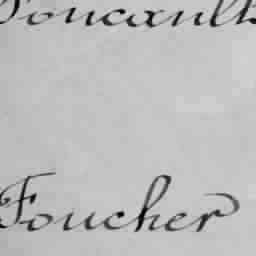 Foucault
Foucher